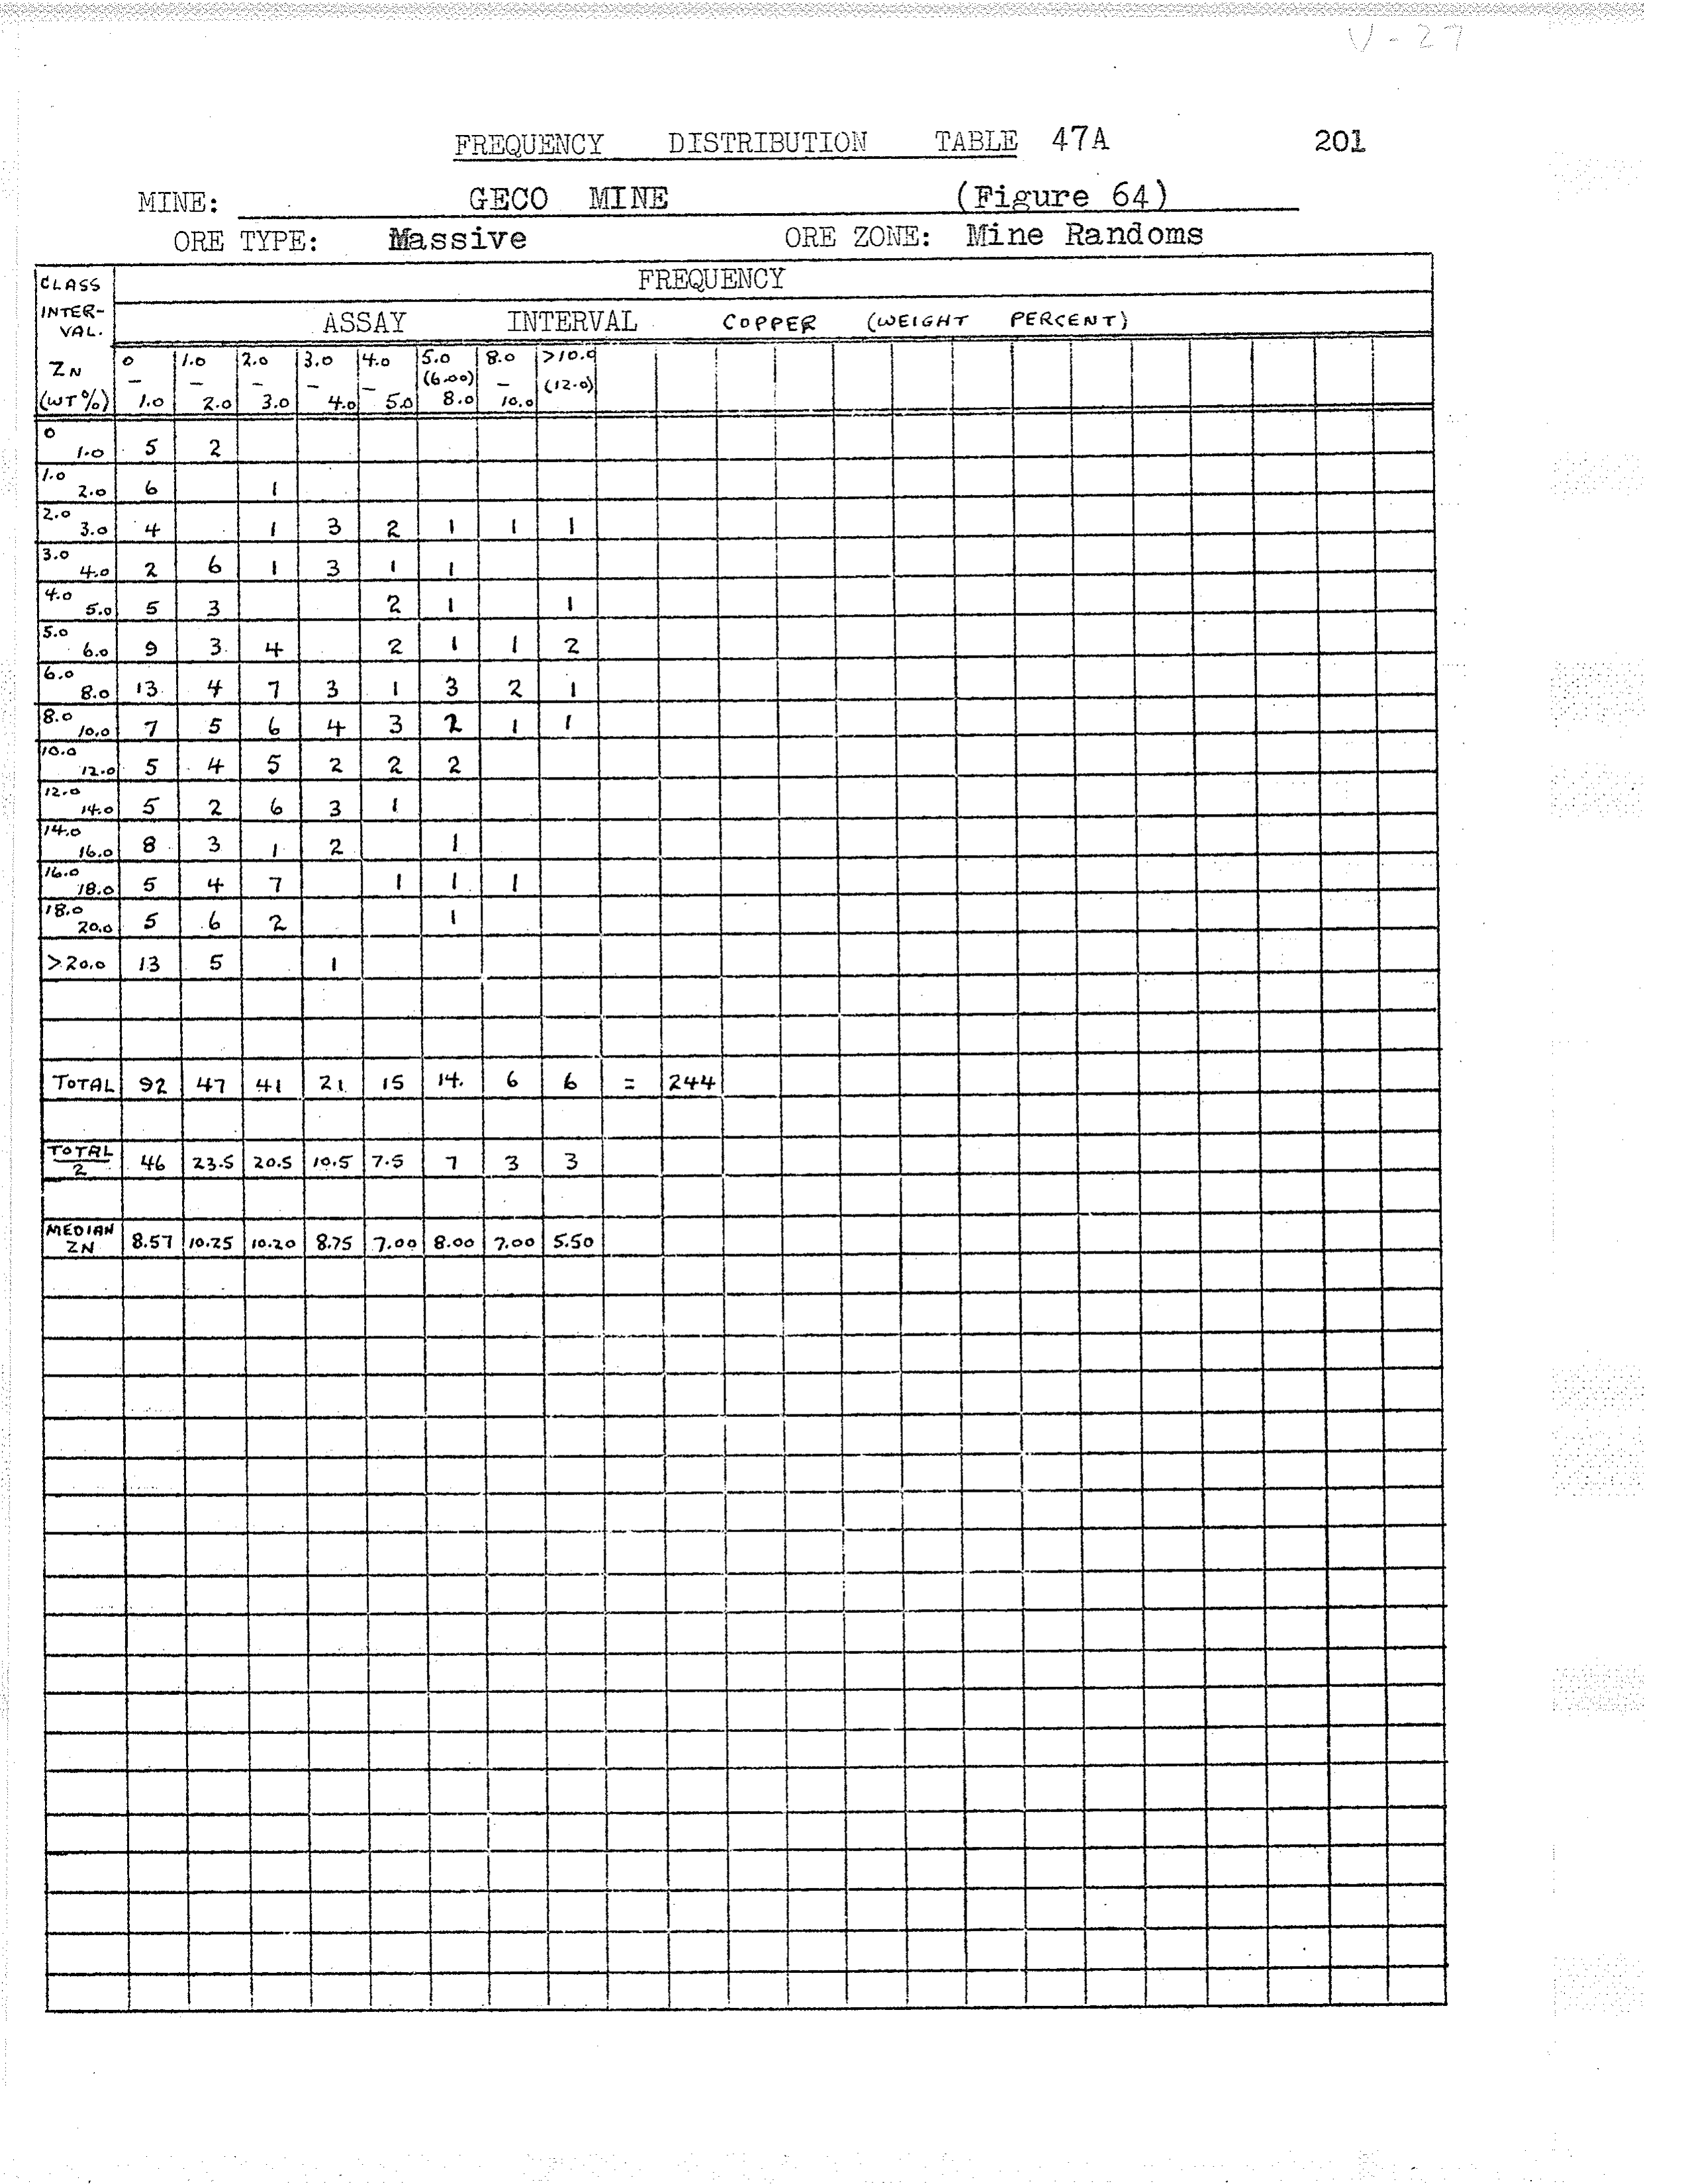 V-27
FREQUENCY DISTRIBUTION TABLE 47A 201
MINE: GECO MINE (Figure 64)
ORE TYPE: Massive ORE ZONE: Mine Randoms
CLASS INTER-VAL. ZN (WT%) FREQUENCY
ASSAY INTERVAL COPPER (WEIGHT PERCENT)
0 – 1.0 1.0 – 2.0 2.0 – 3.0 3.0 – 4.0 4.0 – 5.0 5.0 (6.00) 8.0 8.0 – 10.0 >10.0 (12.0)
0 1.0 5 2
1.0 2.0 6 1
2.0 3.0 4 1 3 2 1 1 1
3.0 4.0 2 6 1 3 1 1
4.0 5.0 5 3 2 1 1
5.0 6.0 9 3 4 2 1 1 2
6.0 8.0 13 4 7 3 1 3 2 1
8.0 10.0 7 5 6 4 3 2 1 1
10.0 12.0 5 4 5 2 2 2
12.0 14.0 5 2 6 3 1
14.0 16.0 8 3 1 2 1
16.0 18.0 5 4 7 1 1 1
18.0 20.0 5 6 2 1
>20.0 13 5 1
TOTAL 92 47 41 21 15 14. 6 6 = 244
TOTAL 2 46 23.5 20.5 10.5 7.5 7 3 3
MEDIAN ZN 8.57 10.25 10.20 8.75 7.00 8.00 7.00 5.50